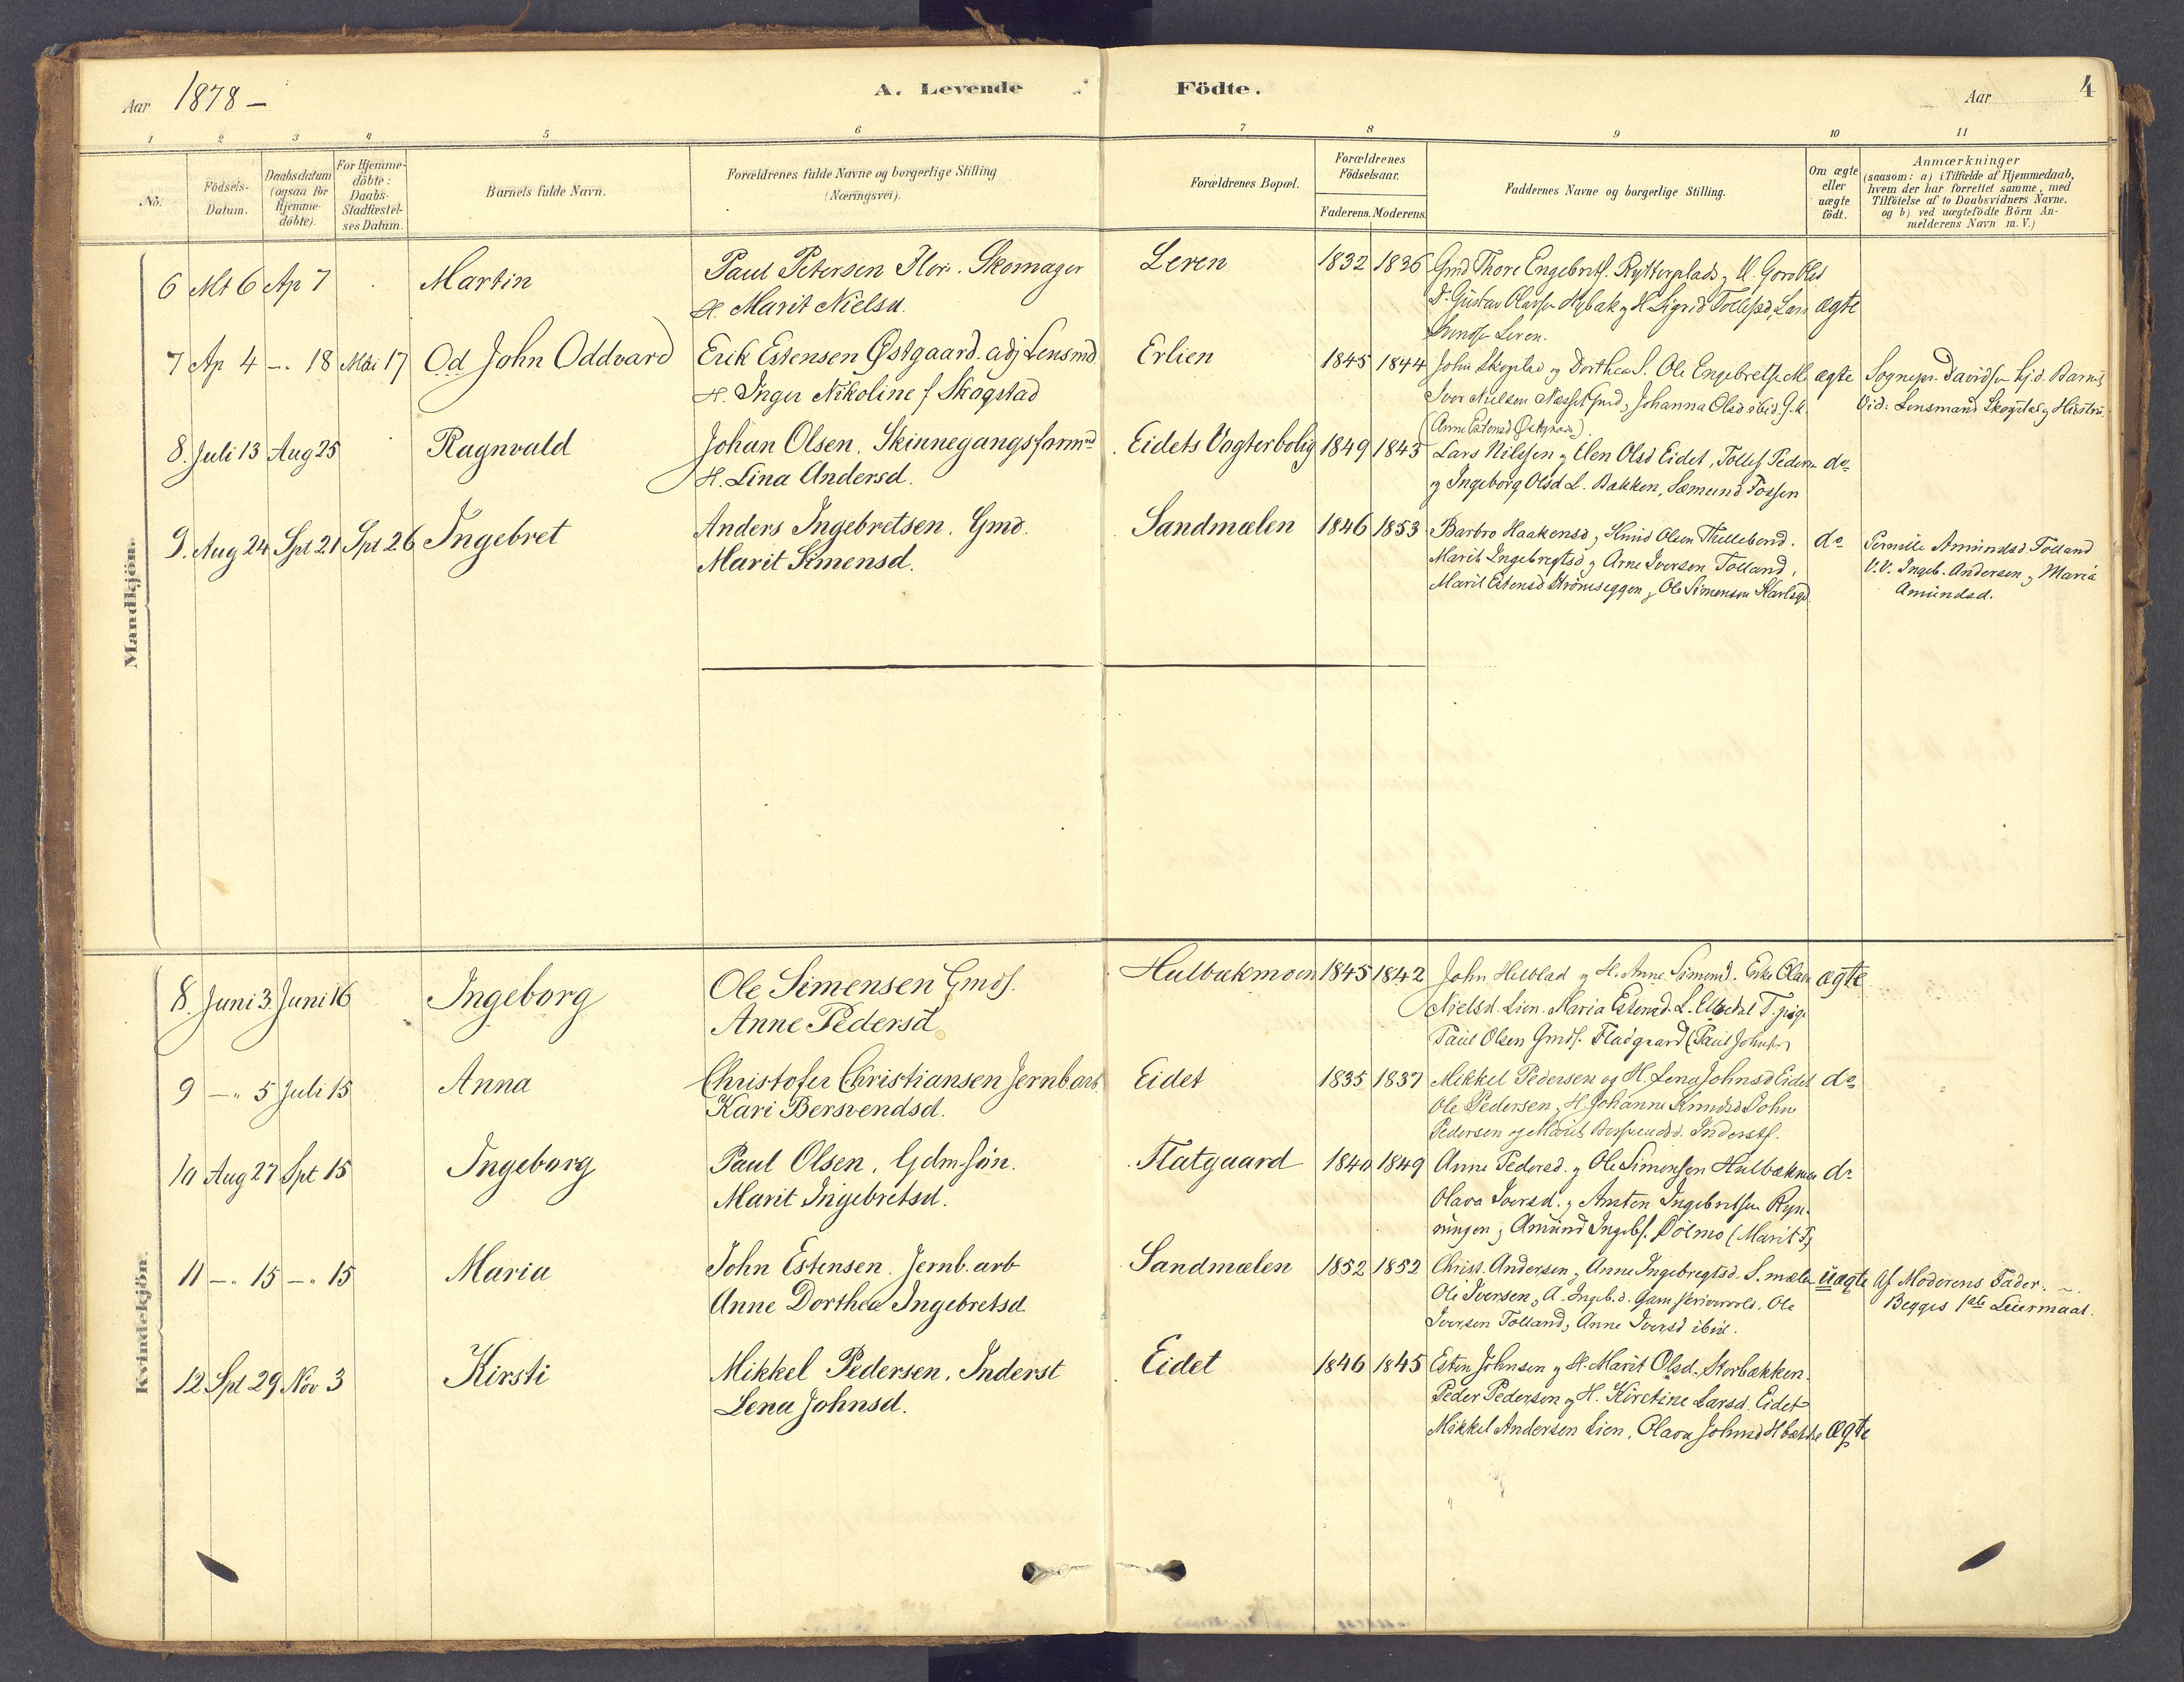 Aar 1878 –
A. Levende Födte.
Aar 4
1 2 3 4 5 6 7 8 9 10 11
No.
Födsels-Datum.
Daabsdatum (ogsaa for Hjemme-döbte).
For Hjemme-döbte: Daabs-Stadfæstel-ses Datum.
Barnets fulde Navn.
Forældrenes fulde Navne og borgerlige Stilling (Næringsvei).
Forældrenes Bopæl.
Forældrenes Födselsaar.
Faderens. Moderens.
Faddernes Navne og borgerlige Stilling.
Om ægte eller uægte födt.
Anmærkninger
(saasom: a) i Tilfælde af Hjemmedaab,
hvem der har forrettet samme, med
Tilföielse af to Daabsvidners Navne.
og b) ved uægtefödte Börn An-
melderens Navn m. V.)
Mandkjön.
6 Mt 6 Ap 7 Martin
Paul Petersen Skomager
H. Marit Nielsd.
Leren 1832 1836
Gmd Thore Engebrets. Rytterplads
Gustav Olavsen H. Sigrid Tollefsd, Lars
Leren.
ægte
7 Ap 4 –" 18 Mai 17 Od John Oddvard
Erik Estensen Østgaard. adj Lensmd
H. Inger Nikoline f Skogstad
Erlien 1845 1844
John Skogstad og Dorthea S. Ole Engebretsen
Iver Nielsen Næsset Gmd, Johanna Olsd ibid.
(Anne Estensd Østgaard)
ægte
Sognepr. Davidsen hjd. Barnet
Vid: Lensmand Skogstad og Hustru
8. Juli 13 Aug 25 Ragnvald
Johan Olsen. Skinnegangsformnd
H. Lina Andersd.
Eidets Vogterbolig 1849 1845
Lars Nilssen og Elen Olsd Eidet, Tollef Peders
og Ingeborg Olsd L. Bakken, Sæmund Fossen
do
9. Aug 24 Spt 21 Spt 26 Ingebret
Anders Ingebretsen. Gmd.
Marit Simensd.
Sandmælen 1846 1853
Barbro Haakensd, Knud Olsen
Marit Ingebregtsd og Arne Iversen Tolland,
Marit Estensd Strömseggen, Ole Simensen
do
Pernille Amundsd. Tolland
V.V. Ingeb. Andersen og Maria
Amundsd.
Kvindekjön.
8. Juni 3. Juni 16 Ingeborg
Ole Simensen Gmds.
Anne Pedersd
Hulbækmoen 1845 1842
John og H. Anne Simensd. Enke Olava
Nielsd. Lien. Maria Estensd. T. pige
Paul Olsen Gmds. Fladgaard (Paul Johnsen
ægte
9 –" 5 Juli 15 Anna
Christofer Christiansen Jernb arb.
Kari Bersvendsd.
Eidet 1835 1837
Mikkel Pedersen og H. Lena Johnsd Eidet
Ole Pedersen, H. Johanne Knudsd John
Pedersen og Marit Bersvendsd. Inderstf.
do
10 Aug 27 Spt 15 Ingeborg
Paul Olsen. Gdmsøn.
Marit Ingebretsd.
Flatgaard 1840 1849
Anne Pedersd. og Ole Simensen Hulbækmo
Olava Iversd. og Amten Ingebretsen Ryn-
ningen og Amund Ingebs. Dölmo (Marit
do
11 –" 15 –" 15 Maria
John Estensen. Jernb. arb
Anne Dorthea Ingebretsd
Sandmælen 1852 1852
Christ. Andersen og Anne Ingebregtsd. S.mælen
Ole Iversen, A. Ingeb.d. Ole
Iversen Tolland, Anne Iversd ibid.
uægte
Af Moderens Fader.
Begges 1ste Leiermaal.
12 Spt 29 Nov 3 Kirsti
Mikkel Pedersen. Inderst
Lena Johnsd.
Eidet 1846 1845
Esten Johnsen og H. Marit Olsd. Storbækken.
Peder Pedersen og H. Kirstine Larsd. Eidet
Mikkel Andersen Lien. Olava Johnsd
ægte